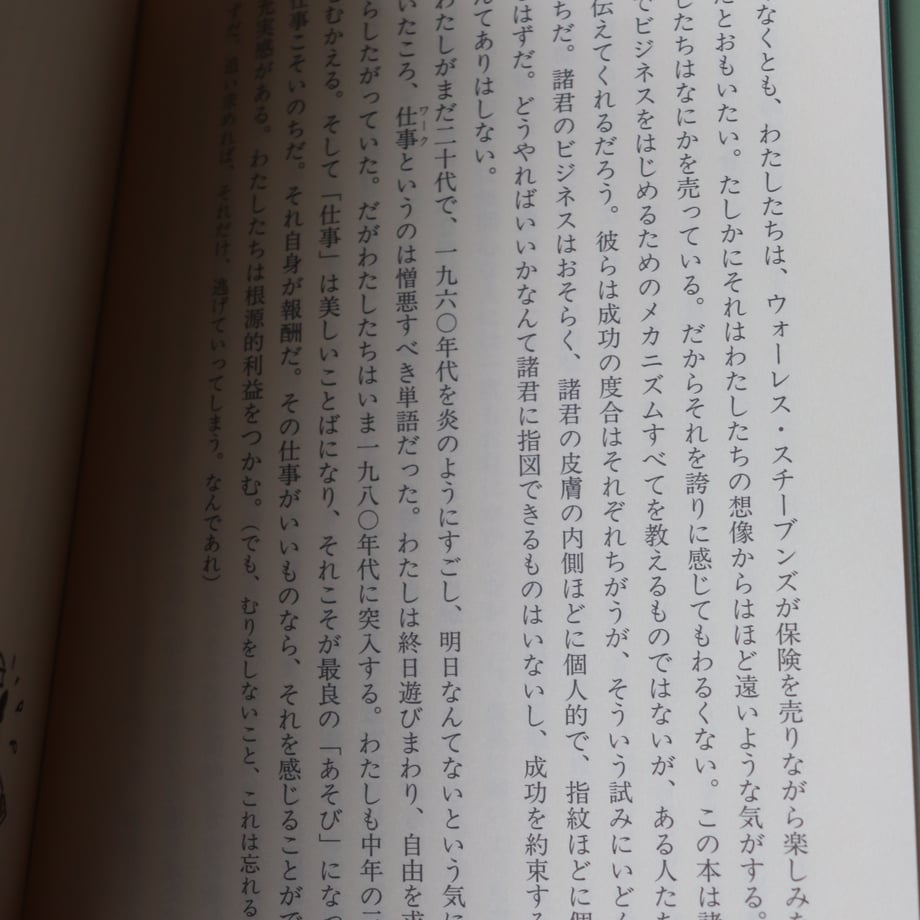 なくとも、わたしたちは、ウォーレス・スチーブンズが保険を売りながら楽しみ
たとおもいたい。たしかにそれはわたしたちの想像からはほど遠いような気がする。
したちはなにかを売っている。だからそれを誇りに感じてもわるくない。この本は諸
でビジネスをはじめるためのメカニズムすべてを教えるものではないが、ある人たち
伝えてくれるだろう。彼らは成功の度合はそれぞれちがうが、そういう試みにいどん
ちだ。諸君のビジネスはおそらく、諸君の皮膚の内側ほどに個人的で、指紋ほどに個
はずだ。どうやればいいかなんて諸君に指図できるものはいないし、成功を約束する
んてありはしない。
わたしがまだ二十代で、一九六〇年代を炎のようにすごし、明日なんてないという気に
いたころ、仕事ワークというのは憎悪すべき単語だった。わたしは終日遊びまわり、自由を求
らしたがっていた。だがわたしたちはいま一九八〇年代に突入する。わたしも中年の
むかえる。そして「仕事」は美しいことばになり、それこそが最良の「あそび」になっ
仕事こそいのちだ。それ自身が報酬だ。その仕事がいいものなら、それを感じることがで
充実感がある。わたしたちは根源的利益をつかむ。（でも、むりをしないこと、これは忘れる
ずだ、追い求めれば、それだけ、逃げていってしまう。なんであれ）